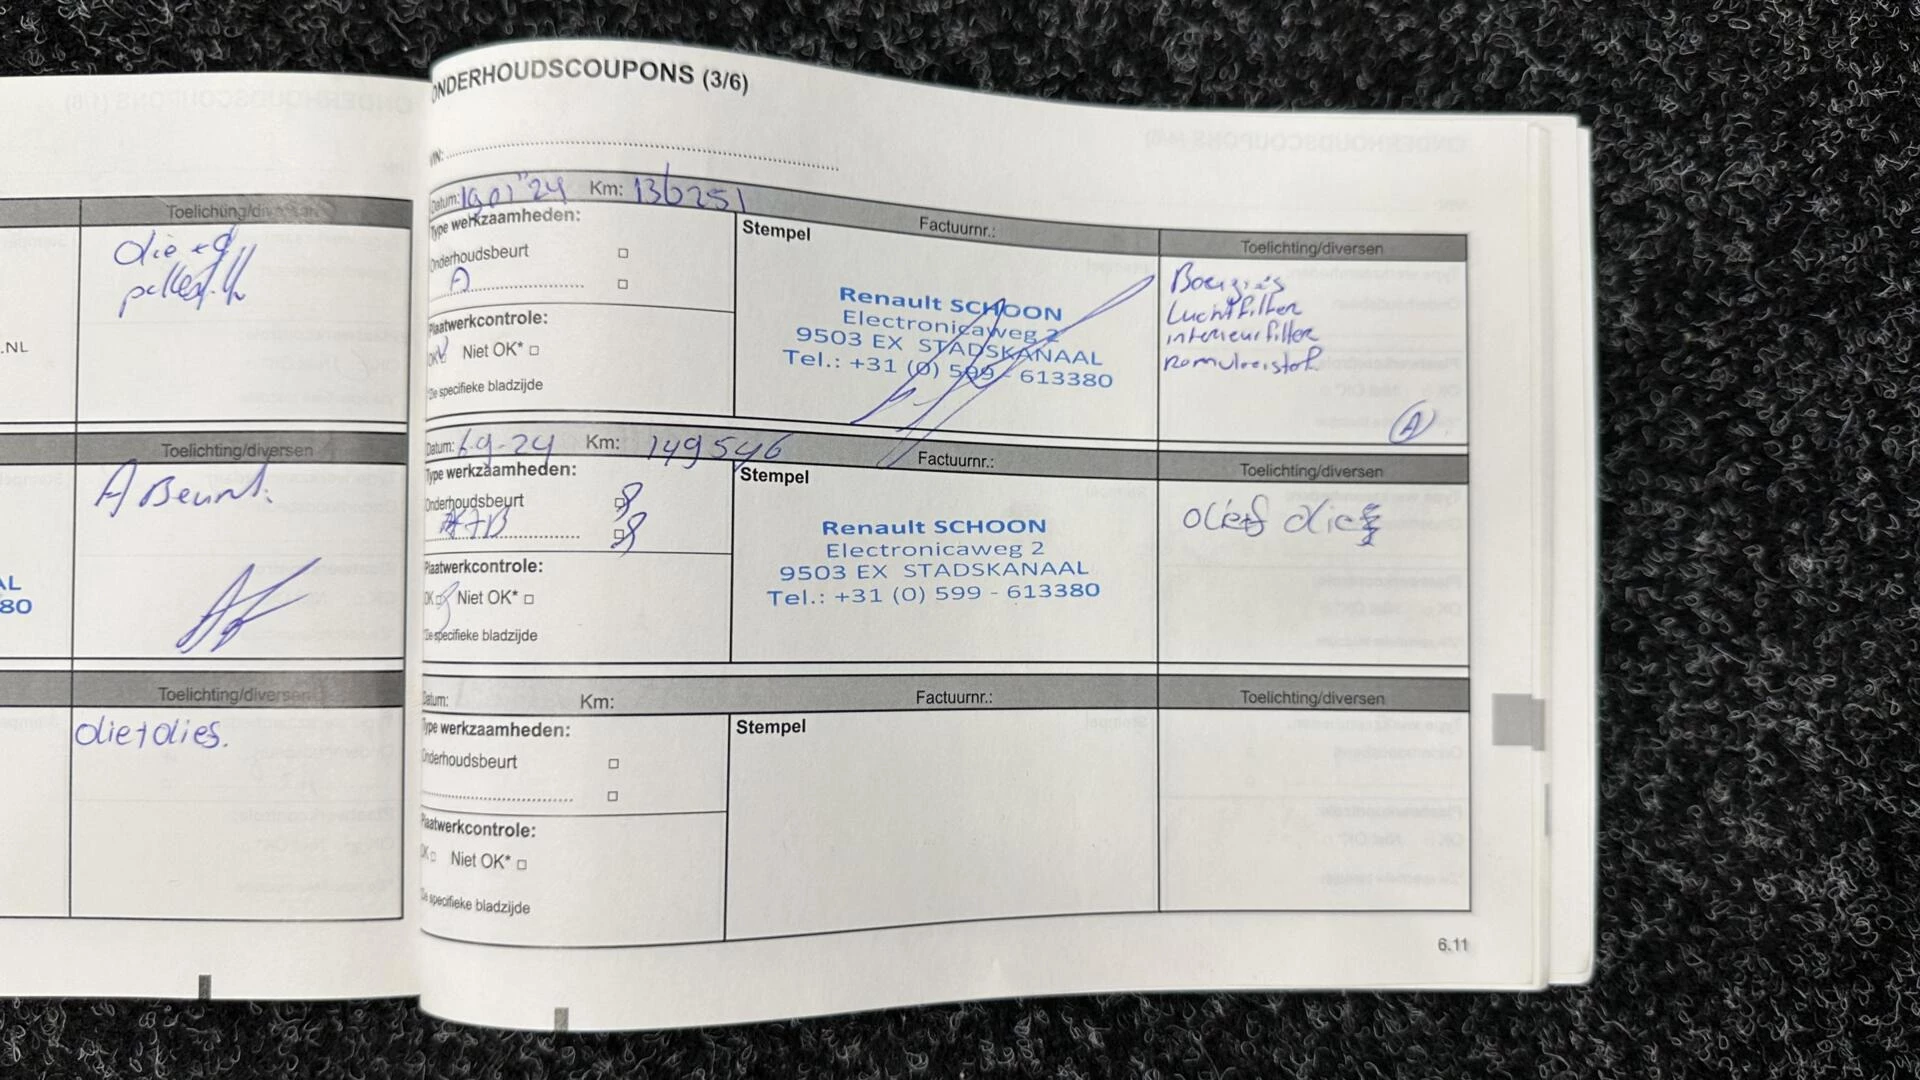 Toelichting/diversen
olie +
.NL
Toelichting/diversen
A Beurt.
AL
80
Toelichting/diversen
olie+olies.
ONDERHOUDSCOUPONS (3/6)
VIN:
Datum: 19 01 "24 Km: 136251
Factuurnr.:
Type werkzaamheden:
Onderhoudsbeurt
A
Plaatwerkcontrole:
OK Niet OK*
*Zie specifieke bladzijde
Stempel
Renault SCHOON
Electronicaweg 2
9503 EX STADSKANAAL
Tel.: +31 (0) 599 - 613380
Toelichting/diversen
Bougies
Luchtfilter
interieurfilter
remvloeistof
A
Datum: 6-9-24 Km: 149546
Factuurnr.:
Type werkzaamheden:
Onderhoudsbeurt
A+B
Plaatwerkcontrole:
OK Niet OK*
*Zie specifieke bladzijde
Stempel
Renault SCHOON
Electronicaweg 2
9503 EX STADSKANAAL
Tel.: +31 (0) 599 - 613380
Toelichting/diversen
Datum: Km:
Factuurnr.:
Type werkzaamheden:
Onderhoudsbeurt
Plaatwerkcontrole:
OK Niet OK*
*Zie specifieke bladzijde
Stempel
Toelichting/diversen
6.11